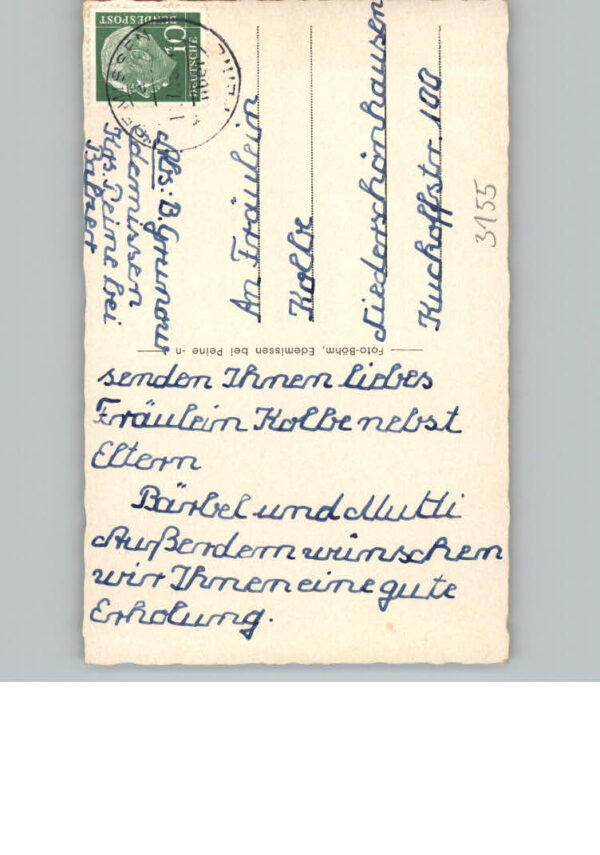 senden Ihnen liebes
Fräulein Kolbe nebst
Eltern
Bärbel und Mutti
Außerdem wünschen
wir Ihnen eine gute
Erholung.
Foto-Böhm, Edemissen bei Peine -n-
Abs: B. Grunow
Edemissen
Krs. Peine bei
An Fräulein
Kolbe
Niederschönhausen
Kuckhoffstr. 100
3155
DEUTSCHE
BUNDESPOST
10